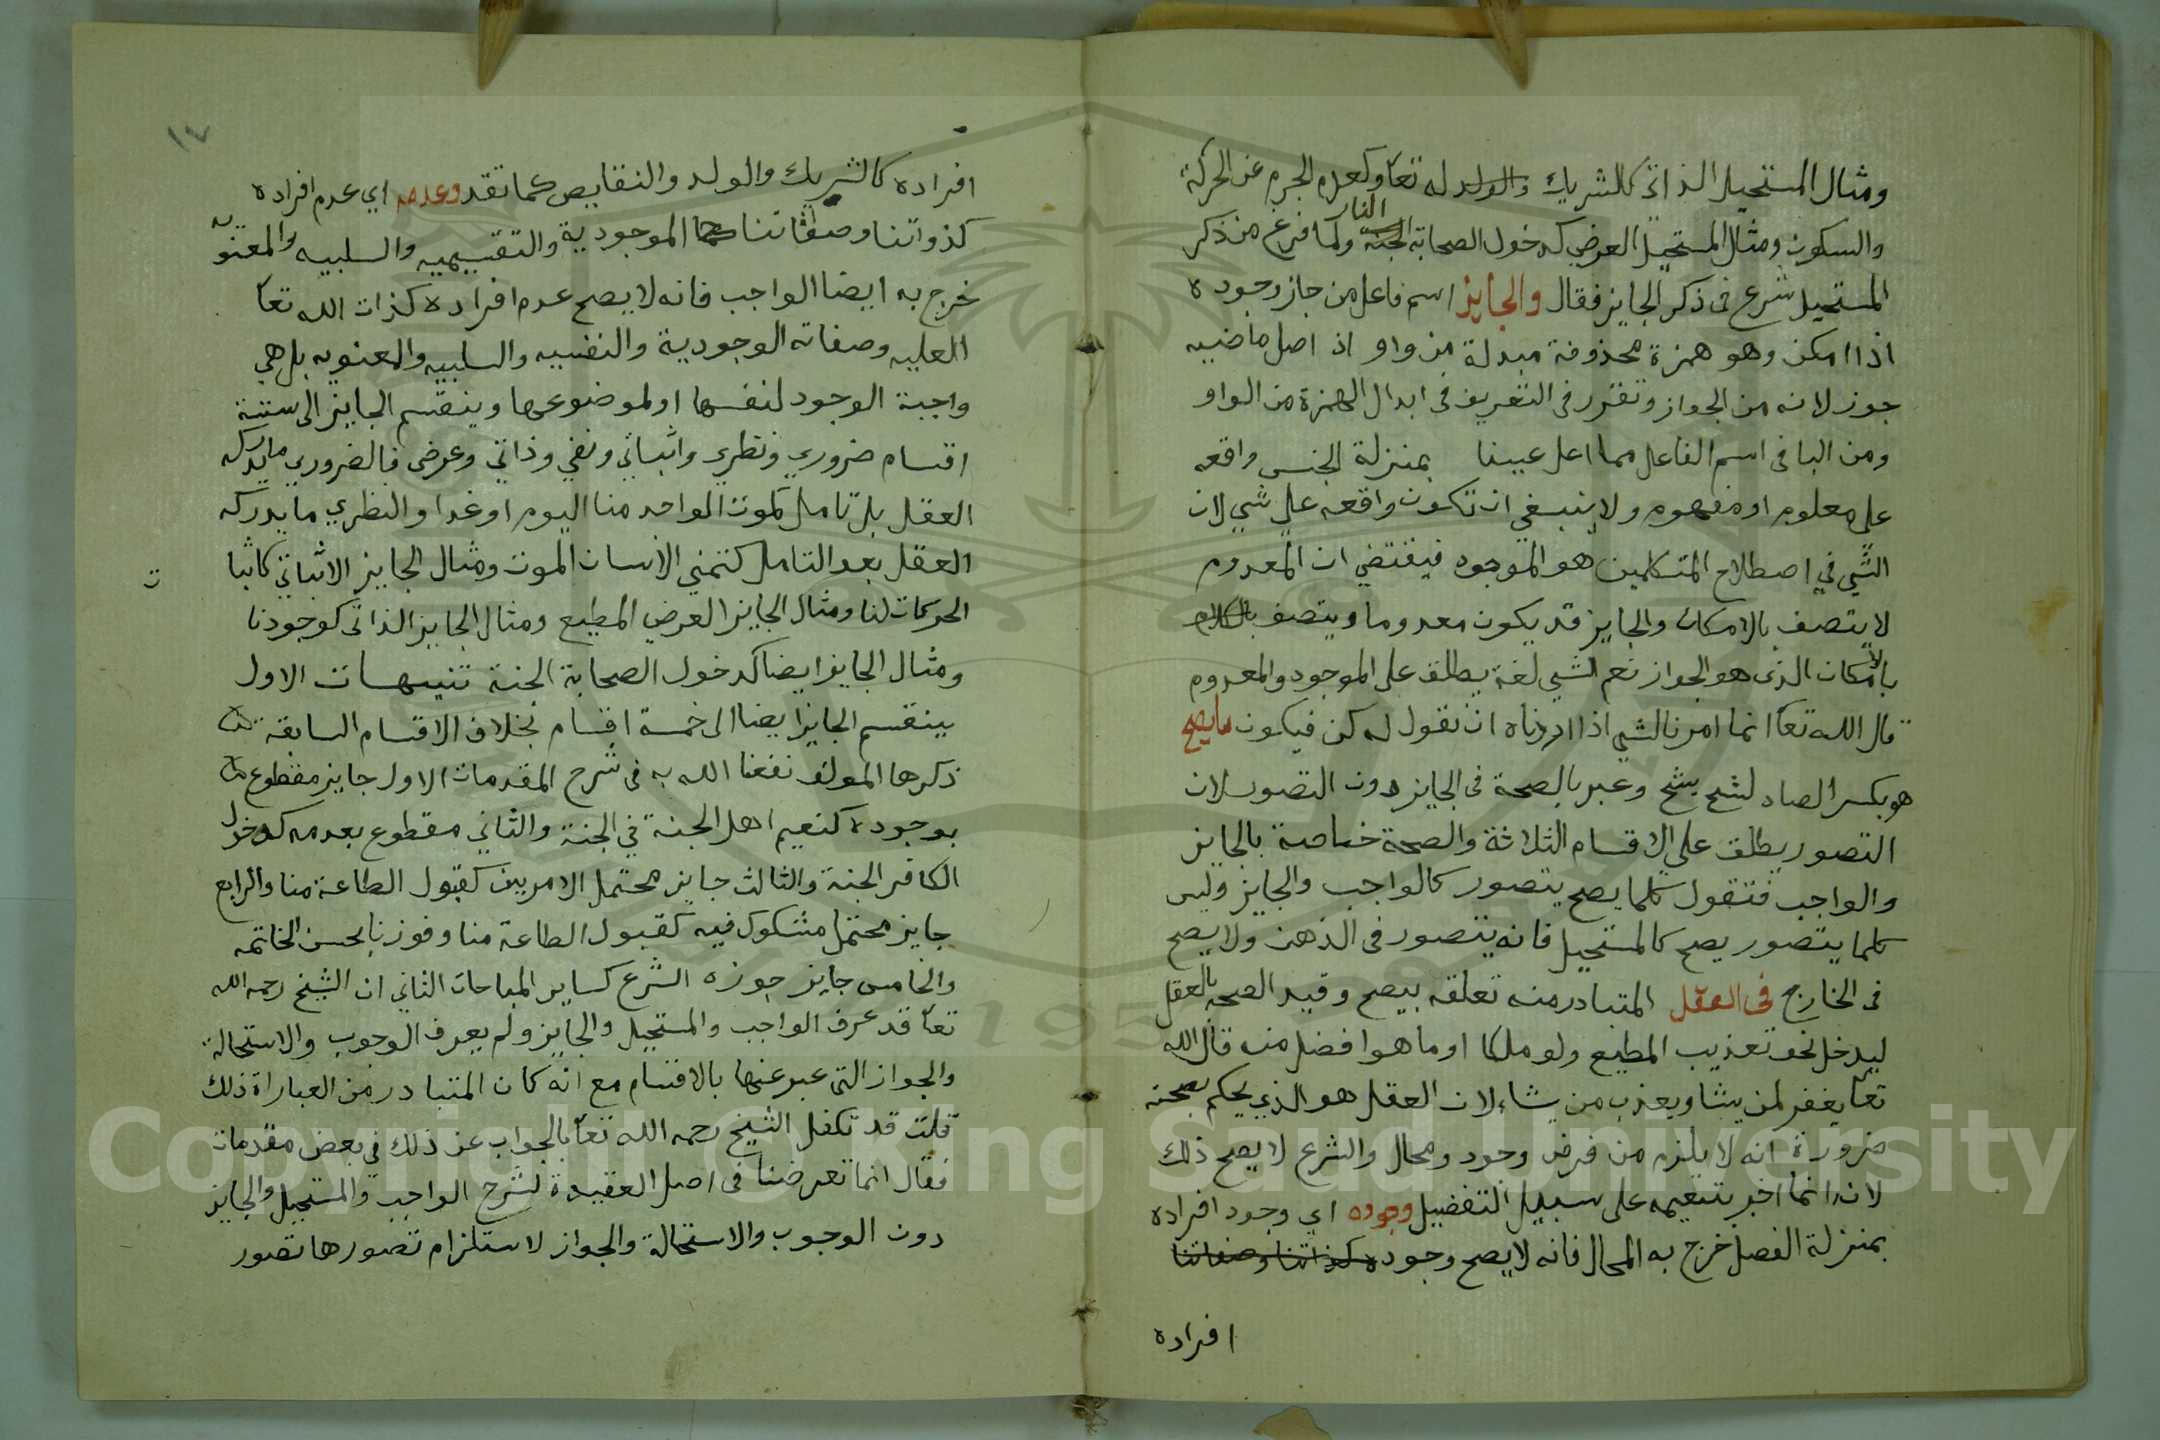 ومثال المستحيل الذاتي كالشريك والولد له تعا وكعدم الجرم عن الحركة
والسكون ومثال المستحيل العرضي كدخول الصحابة الجنة النار ولما فرغ من ذكر
المستحيل شرع في ذكر الجايز فقال والجايز اسم فاعل من جاز وجوده
اذا امكن وهو همزة محذوفة مبدلة من واو اذ اصل ماضيه
جوز لانه من الجواز وتقرر في التعريف في ابدال الهمزة من الواو
ومن اليا في اسم الفاعل مما اعل عينا بمنزلة الجنس واقعه
على معلوم او مفهوم ولا ينبغي ان تكون واقعه علي شي لان
الشي في اصطلاح المتكلمين هو الموجود فيقتضي ان المعدوم
لا يتصف بالامكان والجايز قد يكون معدوما ويتصف
بالامكان الذي هو الجواز نعم الشي لغة يطلق على الموجود والمعدوم
قال الله تعا انما امرنا لشي اذا اردناه ان نقول له كن فيكون ما يصح
هو بكسر الصاد لشح يشح وعبر بالصحة في الجايز دون التصور لان
التصور يطلق علي الاقسام الثلاثة والصحة خاصة بالجايز
والواجب فتقول كلما يصح يتصور كالواجب والجايز وليس
كلما يتصور يصح كالمستحيل فانه يتصور في الذهن ولا يصح
في الخارج في العقل المتبادر منه تعلقه بيصح وقيد الصحه بالعقل
ليدخل نحو تعذيب المطيع ولو ملكا او ما هو افضل منه قال الله
تعا يغفر لمن يشا ويعذب من يشاء لان العقل هو الذي يحكم بصحته
ضرورة انه لا يلزم من فرض وجود ومحال والشرع لا يصح ذلك
لانه انما اخبر بتنعيمه على سبيل التفضيل وجوده اي وجود افراده
بمنزلة الفصل خرج به المحال فانه لا يصح وجوده كذاتنا وصفاتنا
افراده
١٧
افراده كالشريك والولد والنقايص كما تقد وعدمه اي عدم افراده
كذواتنا وصفاتنا الموجودية والنفسيه والسلبيه والمعنويه
خرج به ايضا الواجب فانه لا يصح عدم افراده كذات الله تعا
العليه وصفاته الوجودية والنفسيه والسلبيه والمعنويه بل هي
واجبة الوجود لنفسها او لموضوعها وينقسم الجايز الى ستة
اقسام ضروري ونظري واثباتي ونفي وذاتي وعرضي فالضروري ما يدركه
العقل بل تامل كموت الواحد منا اليوم او غدا والنظري ما يدركه
العقل بعد التامل كتمني الانسان الموت ومثال الجايز الاثباتي كاثبا
ت
الحركات لنا ومثال الجايز العرضي المطيع ومثال الجايز الذاتي كوجودنا
ومثال الجايز ايضا كدخول الصحابة الجنة تنبيهات الاول
ينقسم الجايز ايضا الى خمسة اقسام بخلاف الاقسام السابقة
ذكرها المولف نفعنا الله به في شرح المقدمات الاول جايز مقطوع
بوجوده كنعيم اهل الجنة في الجنة والثاني مقطوع بعدمه كدخول
الكافر الجنة والثالث جايز محتمل الامرين كقبول الطاعة منا والرابع
جايز محتمل مشكوك فيه كقبول الطاعة منا وفوزنا بحسن الخاتمه
والخامس جايز جوزه الشرع كساير المباحات الثاني ان الشيخ رحمه الله
تعا قد عرف الواجب والمستحيل والجايز ولم يعرف الوجوب والاستحالة
والجواز التي عبر عنها بالاقسام مع انه كان المتبادر من العبارة ذلك
قلت قد تكفل الشيخ رحمه الله تعا بالجواب عن ذلك في بعض مقدمات
فقال انما تعرضنا في اصل العقيدة لشرح الواجب والمستحيل والجايز
دون الوجوب والاستحالة والجواز لاستلزام تصورها تصور
Copyright © King Saud University